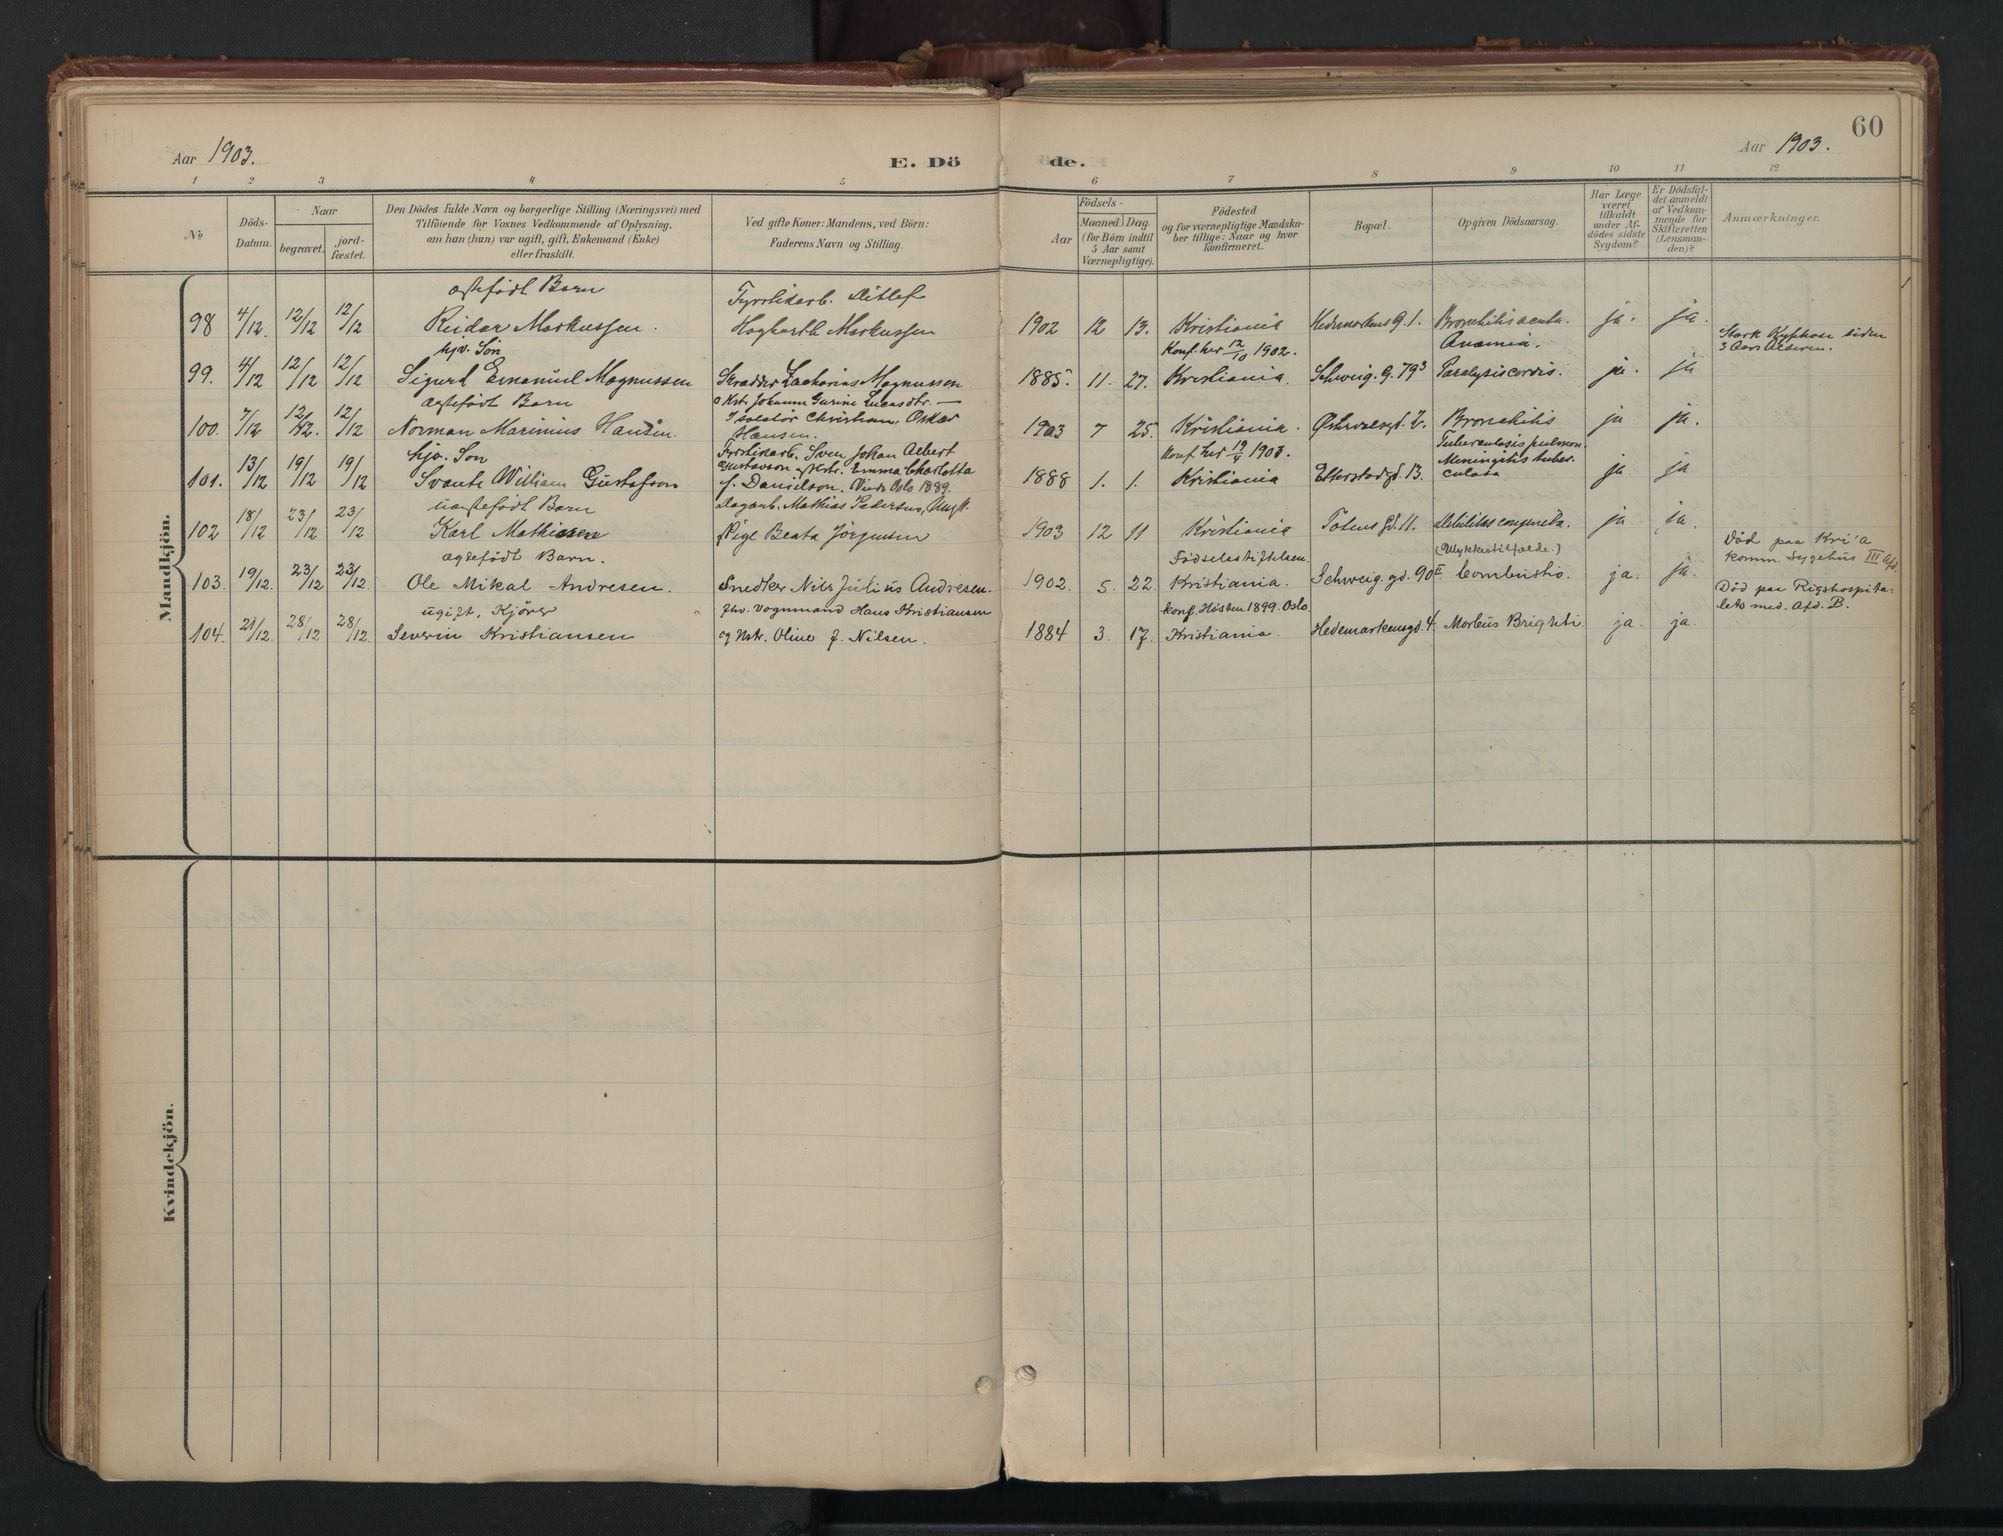 60
Aar 1903.
E. Dö
de.
Aar 1903.
1 2 3 4 5 6 7 8 9 10 11 12
№
Döds-
Datum.
Naar
begravet.
jord-
fæstet.
Den Dödes fulde Navn og borgerlige Stilling (Næringsvei) med
Tilföiende for Voxnes Vedkommende af Oplysning,
om han (hun) var ugift, gift, Enkemand (Enke)
eller fraskilt.
Ved gifte Koner: Mandens, ved Börn:
Faderens Navn og Stilling.
Födsels-
Aar
Maaned Dag.
(for Börn indtil
5 Aar samt
Værnepligtige).
Födested
og for værnepligtige Mandska-
ber tillige: Naar og hvor
konfirmeret.
Bopæl.
Opgiven Dödsaarsag.
Har Læge
været
tilkaldt
under Af-
dödes sidste
Sygdom?
Er Dödsfal-
det anmeldt
af Vedkom-
mende for
Skifteretten
(Lensman-
den)?
Anmærkninger.
Mandkjön.
ægtefødt Barn Fyrstikarb. Ditlef
98 4/12. 12/12 12/12 Reidar Markussen. Hagbarth Markussen 1902 12 13. Kristiania Hedemarkens G. 1. Bronchitis acuta. ja. ja.
Anæmia.
hjv. Søn Konf. her 12/10 1902. Stærk Kyphose siden
3 Aars Alderen.
99. 4/12 12/12 12/12 Sigurd Emanuel Magnussen Skrædder Zacharias Magnussen 1885. 11. 27. Kristiania. Schweig. G. 79³ Paralysis cordis. ja. ja
ægtefødt Barn o Hstr. Johanne Gurine Lucasdtr. —
100. 7/12 12/12. 12/12 Norman Marinius Hansen. Isolatör Christian Oskar 1903 7 25. Kristiania. Bronchitis ja ja.
Hansen.
hjv. Søn Fyrstikarb. Sven Johan Albert Konf. her 19/4 1903. Tuberculosis pulmon.
101. 13/12 19/12 19/12 Svante William Gustafson Gustavson og Hstr. Emma Charlotta 1888 1. 1. Kristiania Etterstadgd. 13. Meningitis tuber- ja ja
culosa
f. Danielson. Viede Oslo 1889.
uægtefødt Barn Dagarb. Mathias Pedersen, Ungk.
102 18/12 23/12 23/12 Karl Mathiasen Pige Beata Jörgensen 1903 12 11 Kristiania Totens gd. 11. Debilitas congenita. ja ja.
ægtefødt Barn. Födselsstiftelsen (Ulykkestilfælde.) Död paa Kri'a
komm. Sygehus III Afd.
103. 19/12. 23/12 23/12. Ole Mikal Andresen. Snedker Nils Julius Andresen. 1902. 5. 22. Kristiania. Schweig. gd. 90 Combustio. ja. ja.
ugift, Kjører fhv. Vognmand Hans Kristiansen konf. Hösten 1899. Oslo Död paa Rigshospita-
lets med. Afd. B.
104. 21/12. 28/12 28/12. Severin Kristiansen og Hstr. Oline f. Nilsen. 1884 3. 17. Kristiania. Hedemarkensgd. 4. Morbus Brighti ja. ja.
Kvindekjön.